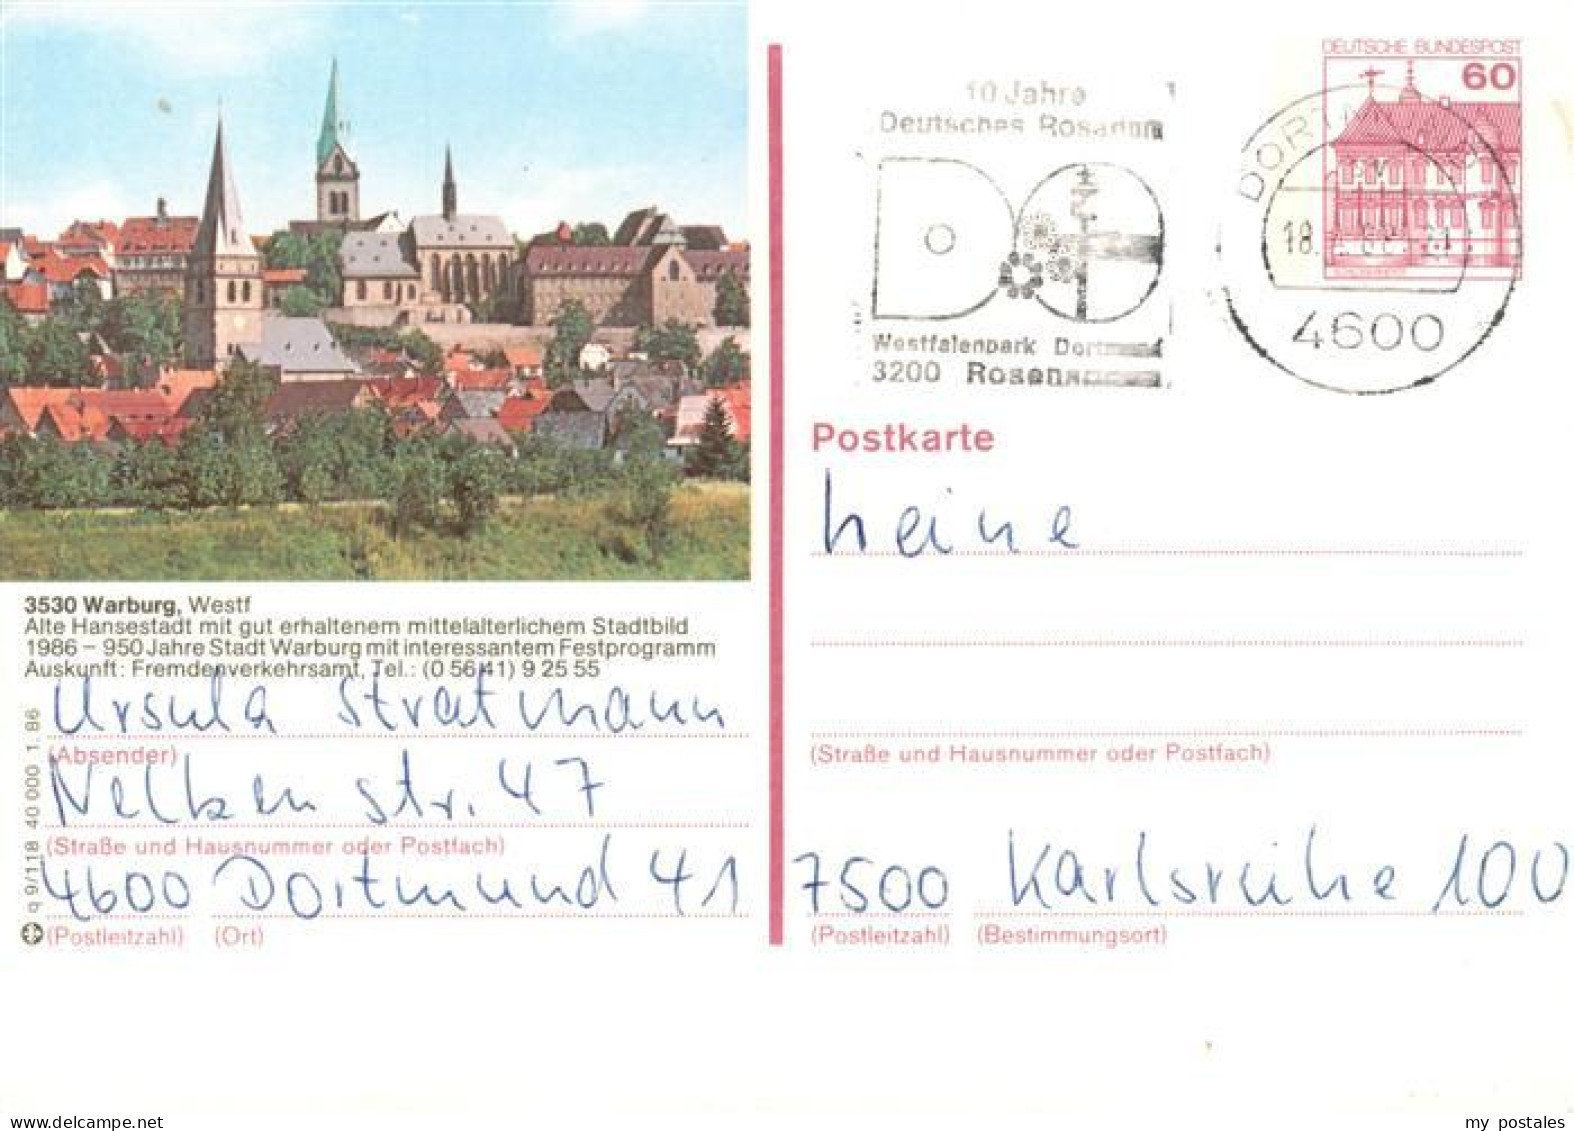 3530 Warburg, Westf
Alte Hansestadt mit gut erhaltenem mittelalterlichem Stadtbild
1986 – 950 Jahre Stadt Warburg mit interessantem Festprogramm
Auskunft: Fremdenverkehrsamt, Tel.: (0 56 41) 9 25 55
Ursula Stratmann
(Absender)
Nelkenstr. 47
(Straße und Hausnummer oder Postfach)
4600 Dortmund 41
(Postleitzahl) (Ort)
q 9/118 40 000 1. 86
10 Jahre
Deutsches Rosarium
DO
Westfalenpark Dortmund
3200
DEUTSCHE BUNDESPOST
60
4600
Postkarte
Heine
(Straße und Hausnummer oder Postfach)
7500 Karlsruhe 100
(Postleitzahl) (Bestimmungsort)
my postales